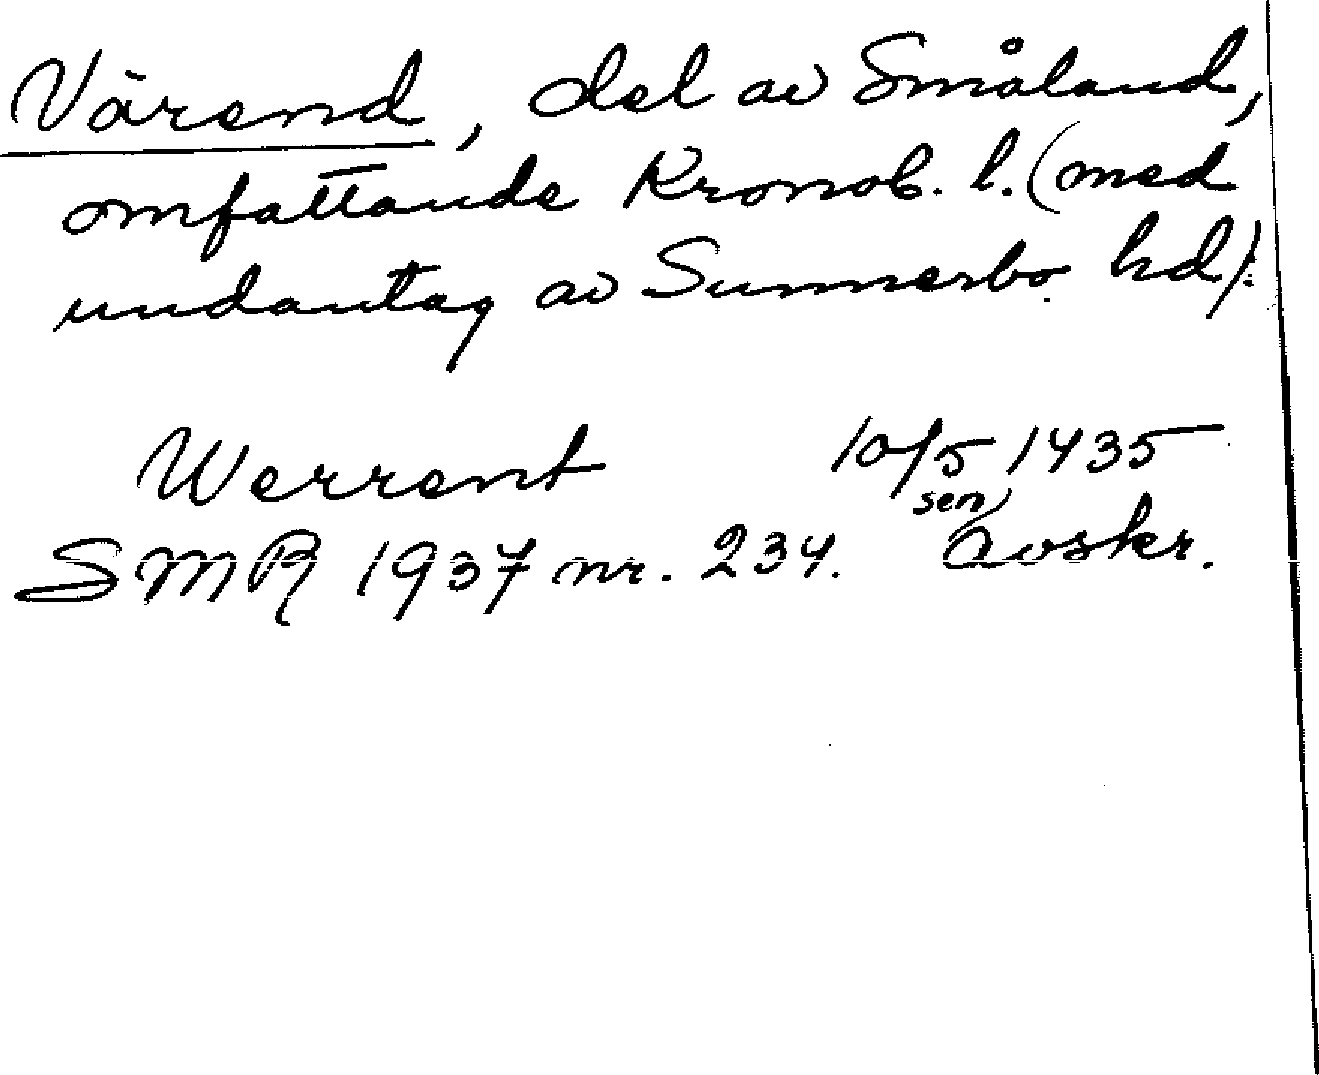 Värend, del av Småland,
omfattande Kronob. l. (med
undantag av Sunnerbo hd).
Werrent 10/5 1435
sen
SMR 1937 nr. 234. avskr.